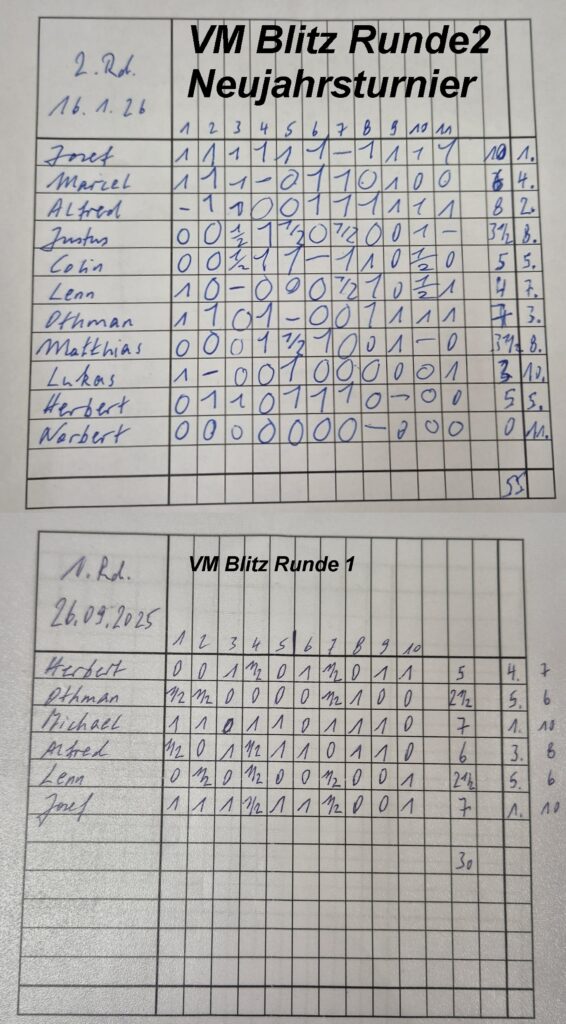 VM Blitz Runde2
Neujahrsturnier
2. Rd.
16.1.26
1 2 3 4 5 6 7 8 9 10 11
Josef 1 1 1 1 1 1 – 1 1 1 1 10 1.
Marcel 1 1 1 – 0 1 1 0 1 0 0 6 4.
Alfred – 1 0 0 0 1 1 1 1 1 1 8 2.
Justus 0 0 1/2 1 1/2 0 1/2 0 0 1 – 3 1/2 8.
Colin 0 0 1/2 1 1 – 1 1 0 1/2 0 5 5.
Lenn 1 0 – 0 0 0 1/2 1 0 1/2 1 4 7.
Othman 1 1 0 1 – 0 0 1 1 1 1 7 3.
Matthias 0 0 0 1 1/2 1 0 0 1 – 0 3 1/2 8.
Lukas 1 – 0 0 1 0 0 0 0 0 1 3 10.
Herbert 0 1 1 0 1 1 1 0 – 0 0 5 5.
Norbert 0 0 0 0 0 0 0 – 0 0 0 0 11.
55
1. Rd.
VM Blitz Runde 1
26.09.2025
1 2 3 4 5 6 7 8 9 10
Herbert 0 0 1 1/2 0 1 1/2 0 1 1 5 4. 7
Othman 1/2 1/2 0 0 0 0 1/2 1 0 0 2 1/2 5. 6
Michael 1 1 0 1 1 0 1 1 1 0 7 1. 10
Alfred 1/2 0 1 1/2 1 1 0 1 1 0 6 3. 8
Lenn 0 1/2 0 1/2 0 0 1/2 0 0 1 2 1/2 5. 6
Josef 1 1 1 1/2 1 1 1/2 0 0 1 7 1. 10
30